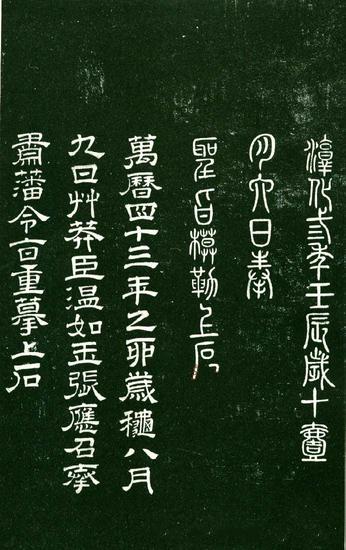 淳化弎年壬辰歲十壹
月六日奉
聖旨模勒上石
萬曆四十三年乙卯歲穐八月
九日艸莽臣温如玉張應召奉
肅藩令旨重摹上石